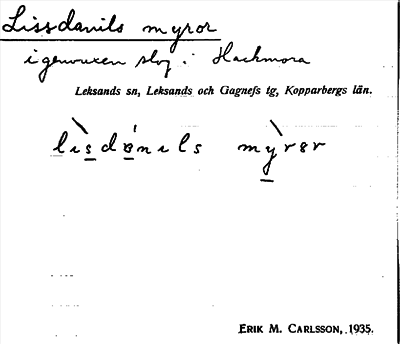 Lissdanils myror
igenvuxen slog i Hackmora
Leksands sn, Leksands och Gagnefs tg, Kopparbergs län.
lısdɐnıls myrɐr
ERIK M. CARLSSON, 1935.